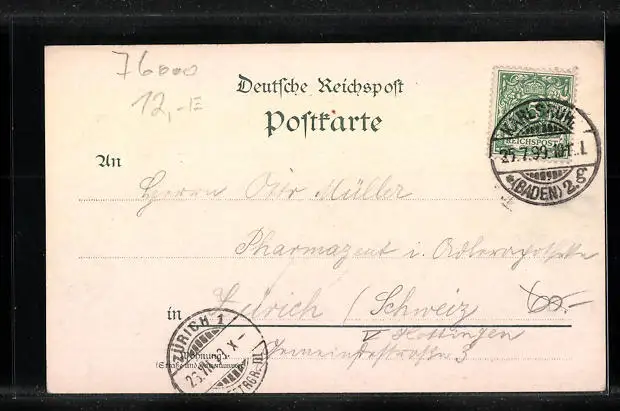 76000
12,-E
Deutsche Reichspost
Postkarte
REICHSPOST
KARLSRUHE
25.7.99.10-11.V.
*(BADEN) 2.g
An
Herrn Otto Müller
Pharmazeut i. Adlerapotheke
in Zürich (Schweiz
60.-
V Hottingen
Gemeindestraße 3
Wohnung
(Straße und Hausnummer)
ZÜRICH 1